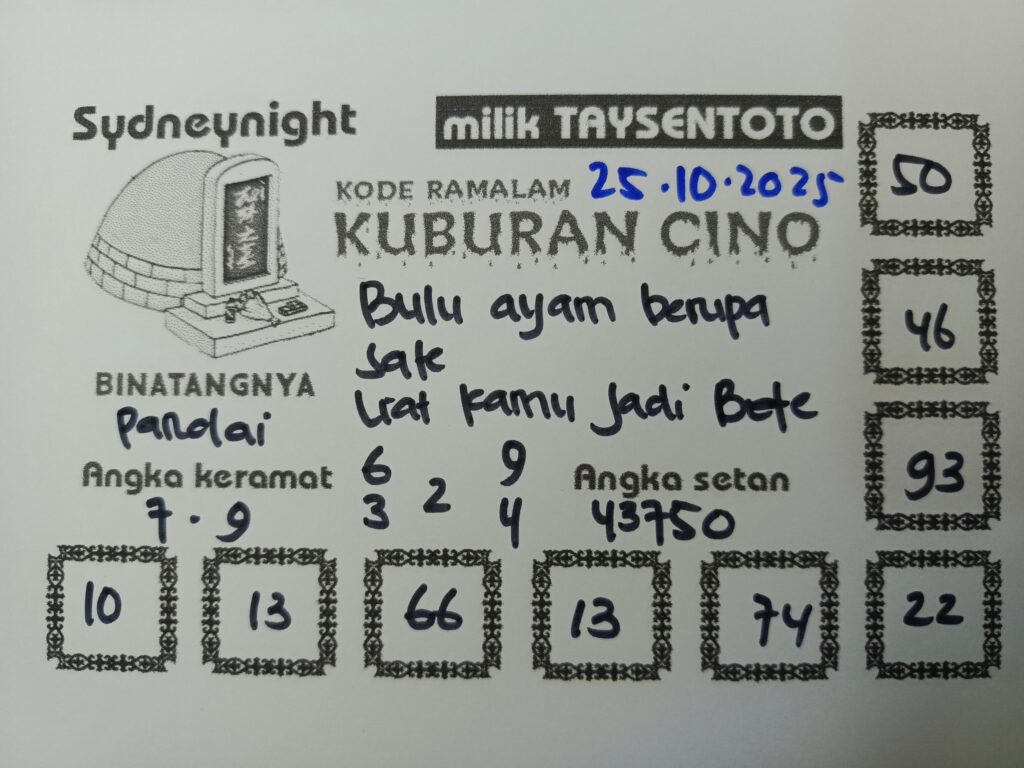 Sydneynight
milik TAYSENTOTO
KODE RAMALAM 25.10.2025
KUBURAN CINO
Bulu ayam berupa
sate
Liat kamu Jadi Bete
BINATANGNYA
Pandai
Angka keramat
7.9
6 9
2
3 4
Angka setan
43750
50
46
93
10 13 66 13 74 22